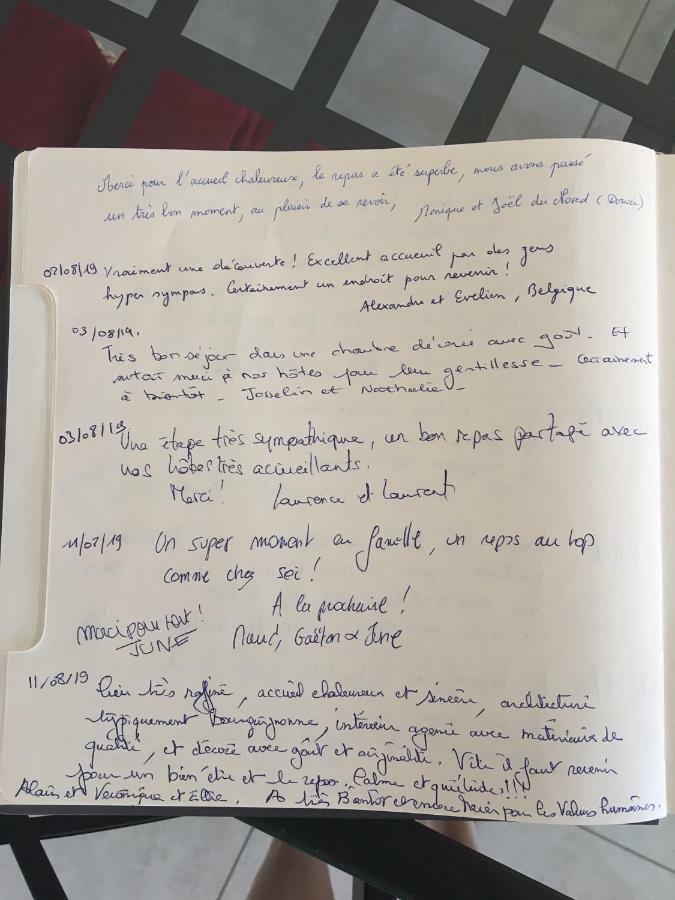 Merci pour l'accueil chaleureux, le repas a été superbe, nous avons passé
un très bon moment, au plaisir de se revoir, Monique et Joël du Nord (Douai)
02/08/19 Vraiment une découverte ! Excellent accueil par des gens
hyper sympas. Certainement un endroit pour revenir !
Alexandre et Evelien, Belgique
03/08/19.
Très bon séjour dans une chambre décorée avec goût. Et
surtout merci à nos hôtes pour leur gentillesse - Certainement
à bientôt - Josselin et Nathalie -
03/08/19 Une étape très sympathique, un bon repas partagé avec
nos hôtes très accueillants.
Merci ! Laurence et Laurent
11/07/19 Un super moment en famille, un repas au top
comme chez soi !
A la prochaine !
Maud, Gaëtan & June
Maci pour tout !
JUNE
11/08/19 Lieu très raffiné, accueil chaleureux et sincère, architecture
typiquement Bourguignonne, intérieur agencé avec matériaux de
qualité, et décoré avec goût et originalité. Vite il faut revenir
pour un bien être et le repos. Calme et quiétude !!!
Alain et Véronique et Ellie. A très Bientôt et encore Merci pour les Valeurs humaines.